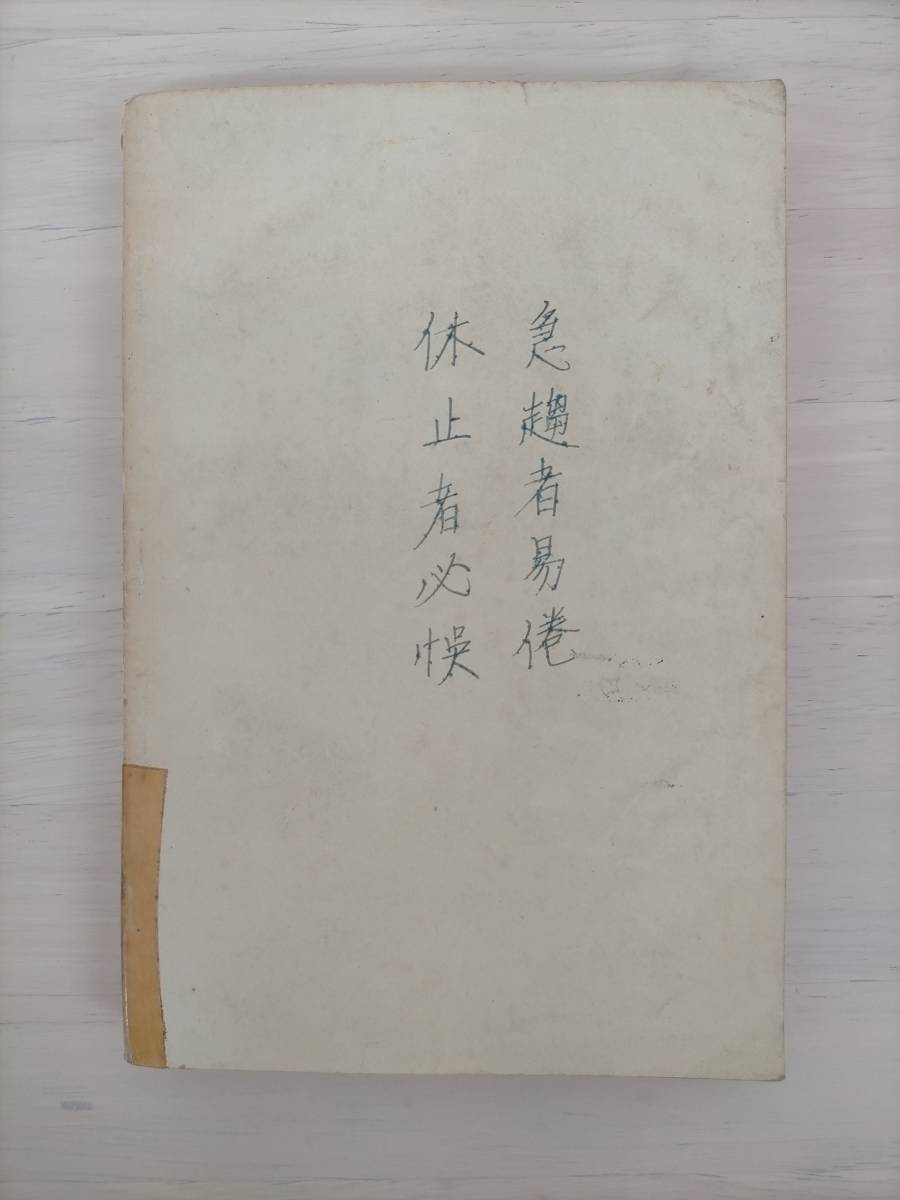 急趨者易倦
休止者必悞